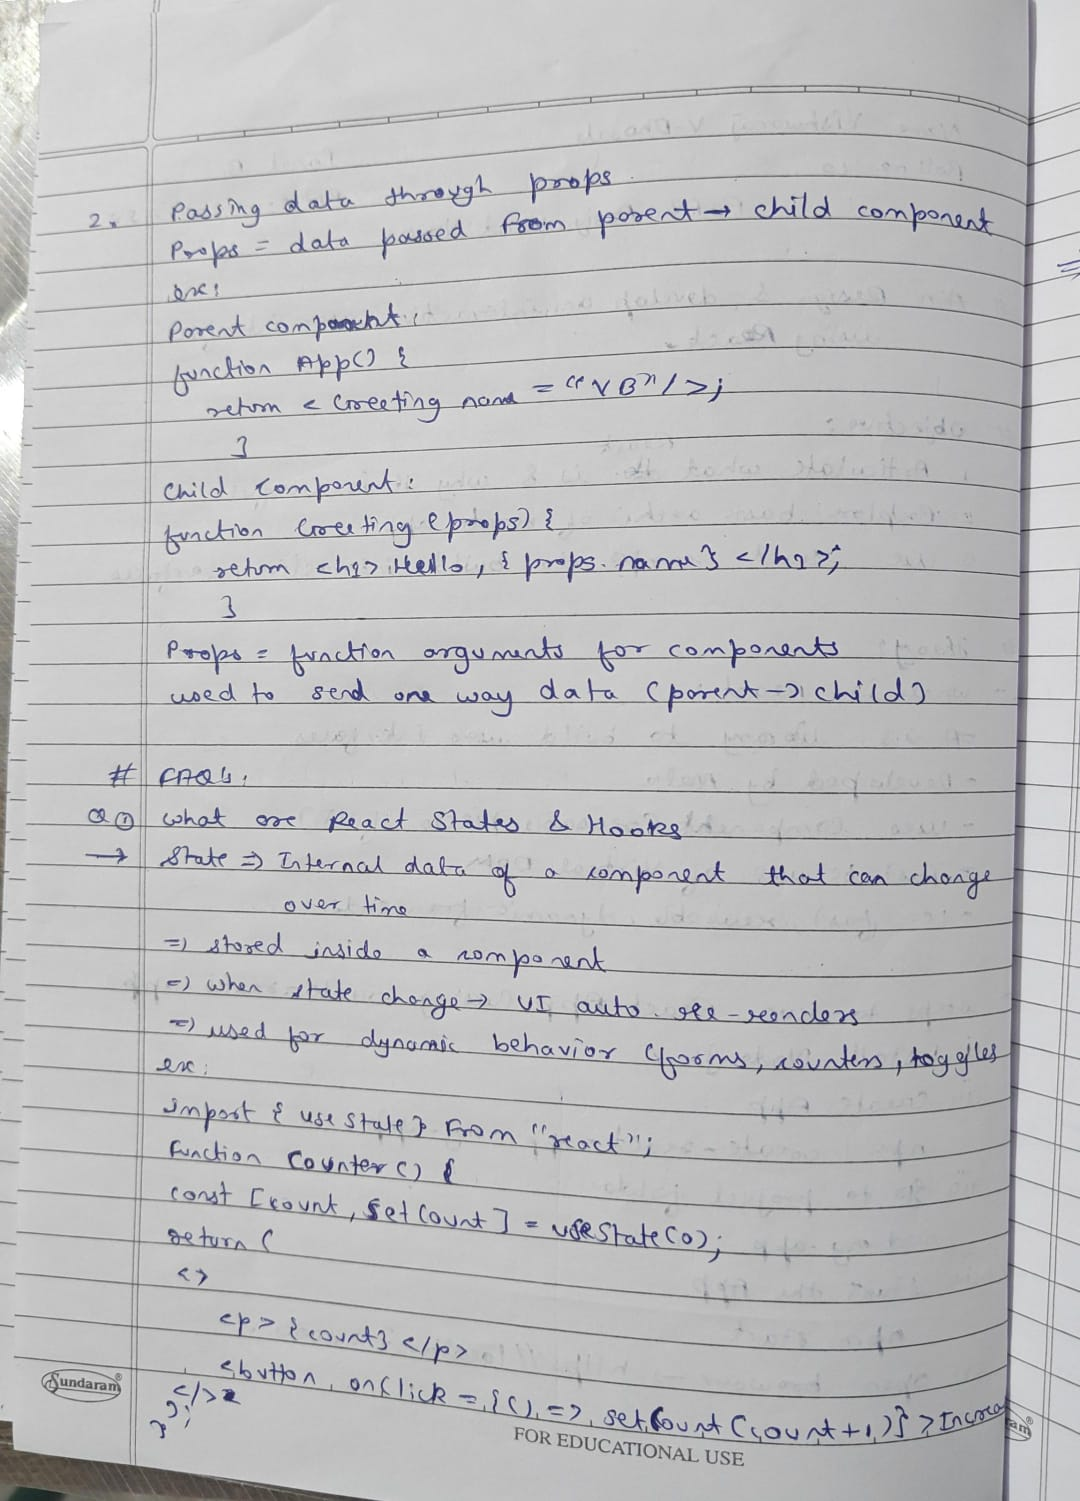 2. Passing data through props
Props = data passed from parent → child component
ex:
Parent component:
function App() {
return < Greeting name = "VB" />;
}
Child component:
function Greeting (props) {
return <h1> Hello, { props. name } </h1>;
}
Props = function arguments for components
used to send one way data (parent → child)
# FAQ's:
Q① What are React States & Hooks
→ State ⇒ Internal data of a component that can change
over time
⇒ stored inside a component
⇒ when state change → UI auto. re-renders
⇒ used for dynamic behavior (forms, counters, toggles
ex:
import { useState } from "react";
function Counter() {
const [count, setCount] = useState(0);
return (
<>
<p> {count} </p>
<button onClick = {() => setCount (count+1)} >
</>
);
}
Sundaram
FOR EDUCATIONAL USE